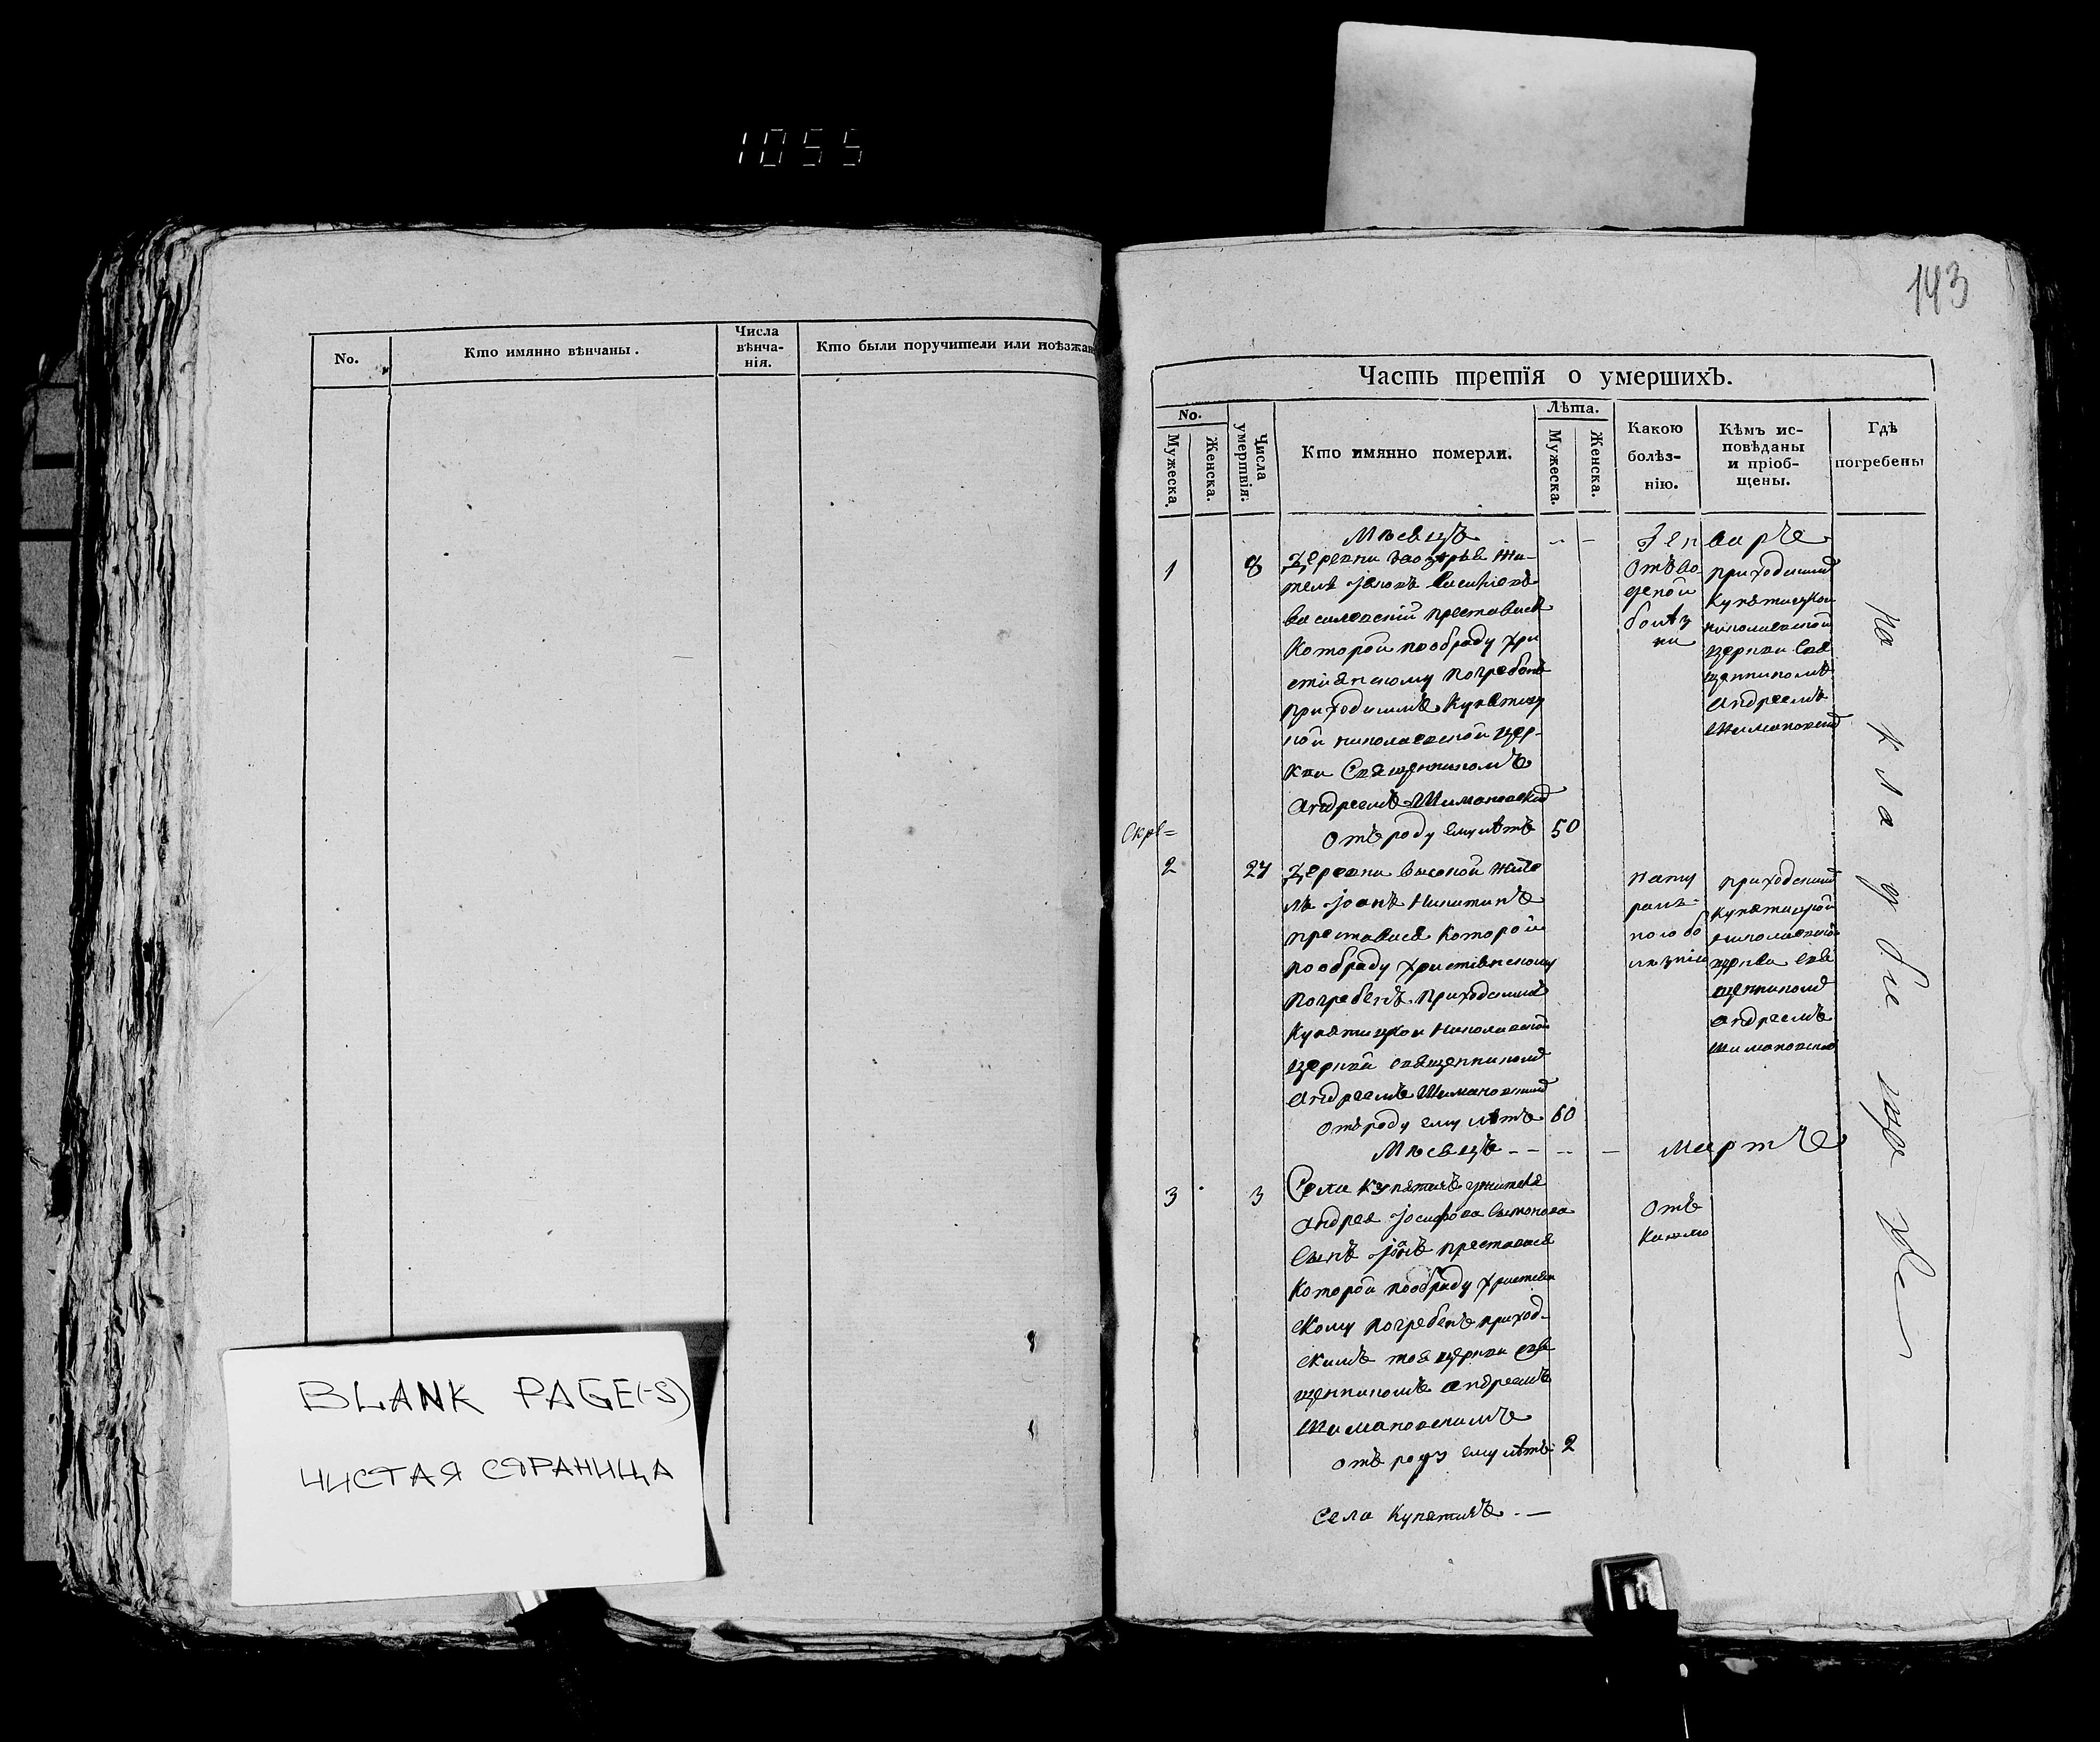 1055
No.
Кто имянно вѣнчаны.
Числа
вѣнча-
нія.
Кто были поручители или поѣзжан
BLANK PAGE(-S)
ЧИСТАЯ СТРАНИЦА
143
Часть третія о умершихъ.
No.
Мужеска.
Женска.
Числа
умертвія.
Кто имянно померли.
Лѣта.
Мужеска.
Женска.
Какою
болѣз-
нію.
Кѣмъ ис-
повѣданы
и пріоб-
щены.
Гдѣ
погребены
Мѣсяцъ - - Генварь
1 8
Деревни жи-
тель
преставися
Который по обряду хри
стіянскому погребенъ
приходскимъ Купятиц
кой николаевской цер-
кви Священникомъ
Андреемъ Шимановскимъ
отъ роду ему лѣтъ 50
Отъ во
дяной
болѣз
ни
приходскимъ
Купятицкой
николаевской
церкви Свя
щенникомъ
Андреемъ
Шимановским
2 27
Деревни высокой жите
ль Іоанъ Никитинъ
преставися Которой
по обряду христіянскому
погребенъ приходскимъ
Купятицкой Николаевской
церкви священникомъ
Андреемъ Шимановским
отъ роду ему лѣтъ 60
нату
раль-
ною бо
лѣзнію
приходским
Купятицкой
николаевской
церкви свя
щенником
Андреемъ
Шимановским
Мѣсяцъ - - - - - Мартъ
3 3
Села Купятичъ жителя
Андрея Іосифова
сынъ Іоанъ преставися
Которой по обряду христіян
скому погребенъ приход-
скимъ тоя церкви свя
щенникомъ Андреемъ
Шимановскимъ
отъ роду ему лѣтъ 2
Отъ
Кашлю
на кладбище
Села Купятичъ - —